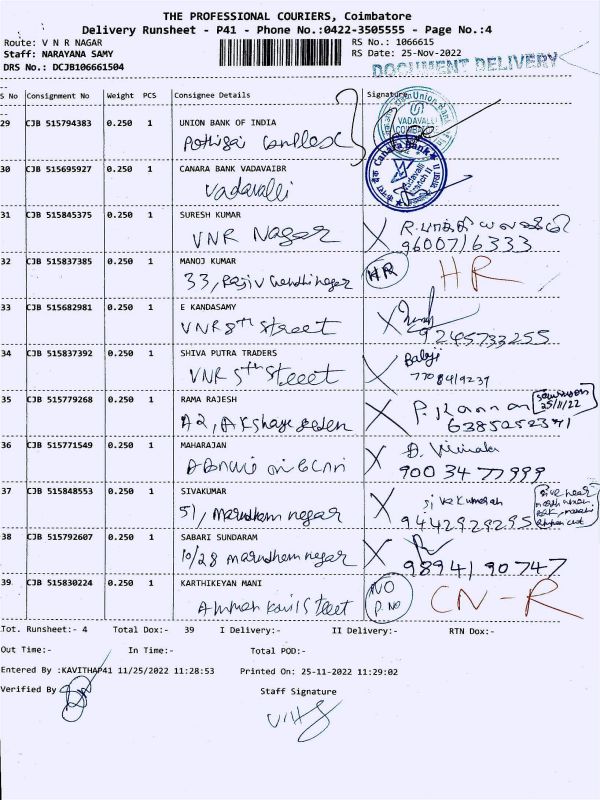 THE PROFESSIONAL COURIERS, Coimbatore
Delivery Runsheet - P41 - Phone No.:0422-3505555 - Page No.:4
Route: V N R NAGAR
Staff: NARAYANA SAMY
DRS No.: DCJB106661504
RS No.: 1066615
RS Date: 25-Nov-2022
DOCUMENT DELIVERY
S No Consignment No Weight PCS Consignee Details Signature
29 CJB 515794383 0.250 1 UNION BANK OF INDIA
Union Bank
VADAVALLI
30 CJB 515695927 0.250 1 CANARA BANK VADAVAIBR
Vadavalli
Canara Bank
31 CJB 515845375 0.250 1 SURESH KUMAR
VNR Nagar
9600716333
32 CJB 515837385 0.250 1 MANOJ KUMAR
33, Rajiv Gandhi nagar HR HR
33 CJB 515682981 0.250 1 E KANDASAMY
VNR 8th street 9245733255
34 CJB 515837392 0.250 1 SHIVA PUTRA TRADERS
VNR 5th Street Balaji
35 CJB 515779268 0.250 1 RAMA RAJESH
P. Kannan 25/11/22
6385252371
36 CJB 515771549 0.250 1 MAHARAJAN
90034 77999
37 CJB 515848553 0.250 1 SIVAKUMAR
51, marudham nagar Sivakumar
9442929295
38 CJB 515792607 0.250 1 SABARI SUNDARAM
10/28 marudham nagar 98941 90747
39 CJB 515830224 0.250 1 KARTHIKEYAN MANI
Amman kovil Street NO P.NO CN-R
Tot. Runsheet:- 4 Total Dox:- 39 I Delivery:- II Delivery:- RTN Dox:-
Out Time:- In Time:- Total POD:-
Entered By :KAVITHAP41 11/25/2022 11:28:53 Printed On: 25-11-2022 11:29:02
Verified By
Staff Signature